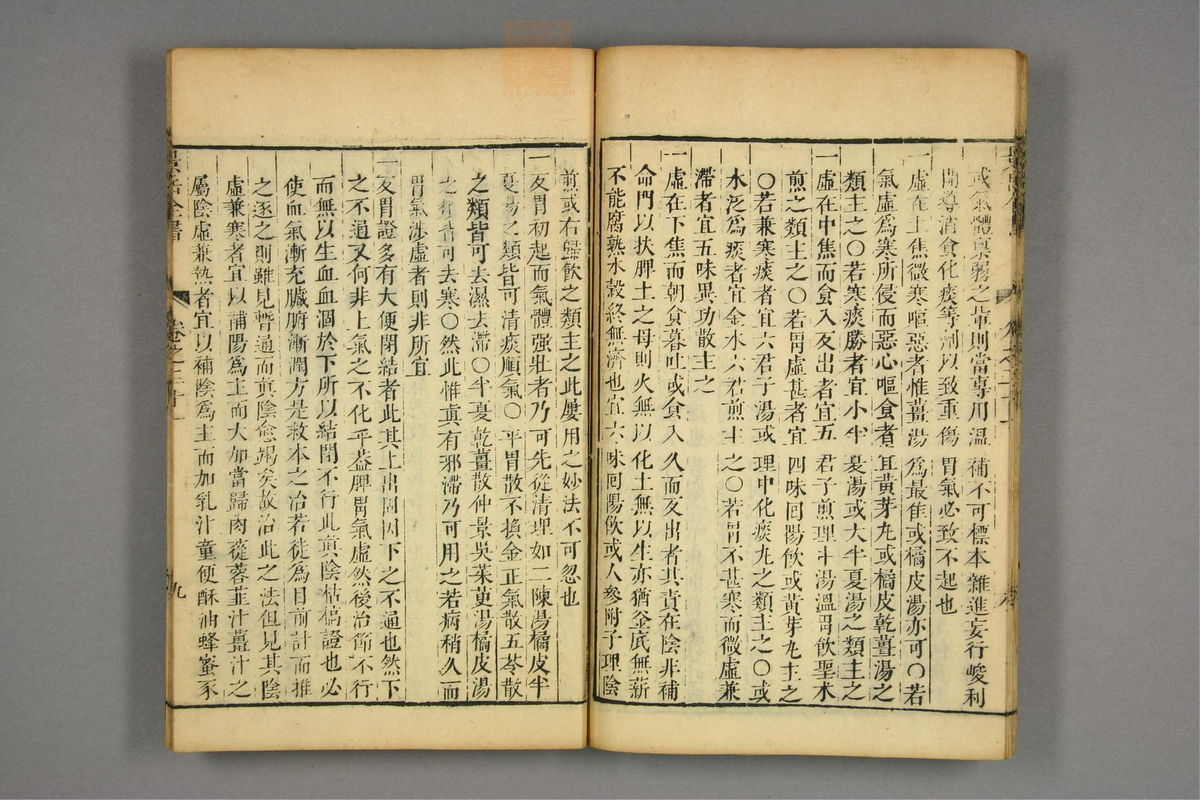 或氣體禀弱之輩則當專用溫補不可標本雜進妄行峻利
開導消食化痰等劑以致重傷胃氣必致不起也
一虛在上焦微寒嘔惡者惟薑湯爲最佳或橘皮湯亦可〇若
氣虛爲寒所侵而惡心嘔食者宜黃芽丸或橘皮乾薑湯之
類主之〇若寒痰勝者宜小半夏湯或大半夏湯之類主之
一虛在中焦而食入反出者宜五君子煎理中湯溫胃飲聖术
煎之類主之〇若胃虛甚者宜四味回陽飲或黃芽丸主之
〇若兼寒痰者宜六君子湯或理中化痰丸之類主之〇或
水泛爲痰者宜金水六君煎主之〇若胃不甚寒而微虛兼
滯者宜五味異功散主之
一虛在下焦而朝食暮吐或食入久而反出者其責在陰非補
命門以扶脾土之母則火無以化土無以生亦猶釜底無薪
不能腐熟水穀終無濟也宜六味回陽飲或人參附子理陰
煎或右歸飲之類主之此屢用之妙法不可忽也
一反胃初起而氣體強壯者乃可先從清理如二陳湯橘皮半
夏湯之類皆可清痰順氣〇平胃散不換金正氣散五苓散
之類皆可去濕去滯〇半夏乾薑散仲景吳茱萸湯橘皮湯
之類皆可去寒〇然此惟眞有邪滯乃可用之若病稍久而
胃氣涉虛者則非所宜
一反胃證多有大便閉結者此其上出固因下之不通也然下
之不通又何非上氣之不化乎蓋脾胃氣虛然後治節不行
而無以生血血涸於下所以結閉不行此眞陰枯槁證也必
使血氣漸充臟腑漸潤方是救本之治若徒爲目前計而推
之逐之則雖見暫通而眞陰愈竭矣故治此之法但見其陰
虛兼寒者宜以補陽爲主而大加當歸肉蓯蓉韮汁薑汁之
屬陰虛兼熱者宜以補陰爲主而加乳汁童便酥油蜂蜜豕
景岳全書
卷之二十一
九